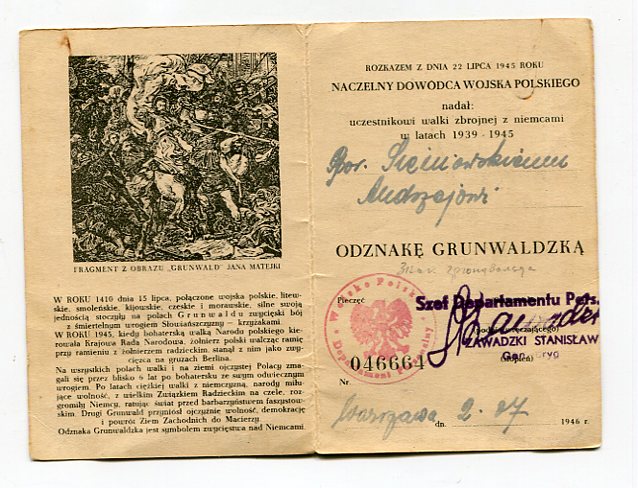 FRAGMENT Z OBRAZU „GRUNWALD" JANA MATEJKI
W ROKU 1410 dnia 15 lipca, połączone wojska polskie, litew-
skie, smoleńskie, kijowskie, czeskie i morawskie, silne swoją
jednością stoczyły na polach Grunwaldu zwycięski bój
z śmiertelnym wrogiem Słowiańszczyzny — krzyżakami.
W ROKU 1945, kiedy bohaterską walką Narodu polskiego kie-
rowała Krajowa Rada Narodowa, żołnierz polski walcząc ramię
przy ramieniu z żołnierzem radzieckim, stanął z nim jako zwy-
cięzca na gruzach Berlina.
Na wszystkich polach walki i na ziemi ojczystej Polacy zma-
gali się przez blisko 6 lat po bohatersku ze swym odwiecznym
wrogiem. Po latach ciężkiej walki z niemczyzną, narody miłu-
jące wolność, z wielkim Związkiem Radzieckim na czele, roz-
gromiły Niemcy, ratując świat przed barbarzyństwem faszystow-
skim. Drugi Grunwald przyniósł ojczyźnie wolność, demokrację
i powrót Ziem Zachodnich do Macierzy.
Odznaka Grunwaldzka jest symbolem zwycięstwa nad Niemcami.
ROZKAZEM Z DNIA 22 LIPCA 1945 ROKU
NACZELNY DOWÓDCA WOJSKA POLSKIEGO
nadał:
uczestnikowi walki zbrojnej z niemcami
w latach 1939 - 1945
Ppor.
Andrzejowi
ODZNAKĘ GRUNWALDZKĄ
Pieczęć
Wojsko Polskie
Departament Personalny
Szef Departamentu Pers.
ZAWADZKI STANISŁAW
046664
Nr.
Warszawa dn. 2. 1946 r.